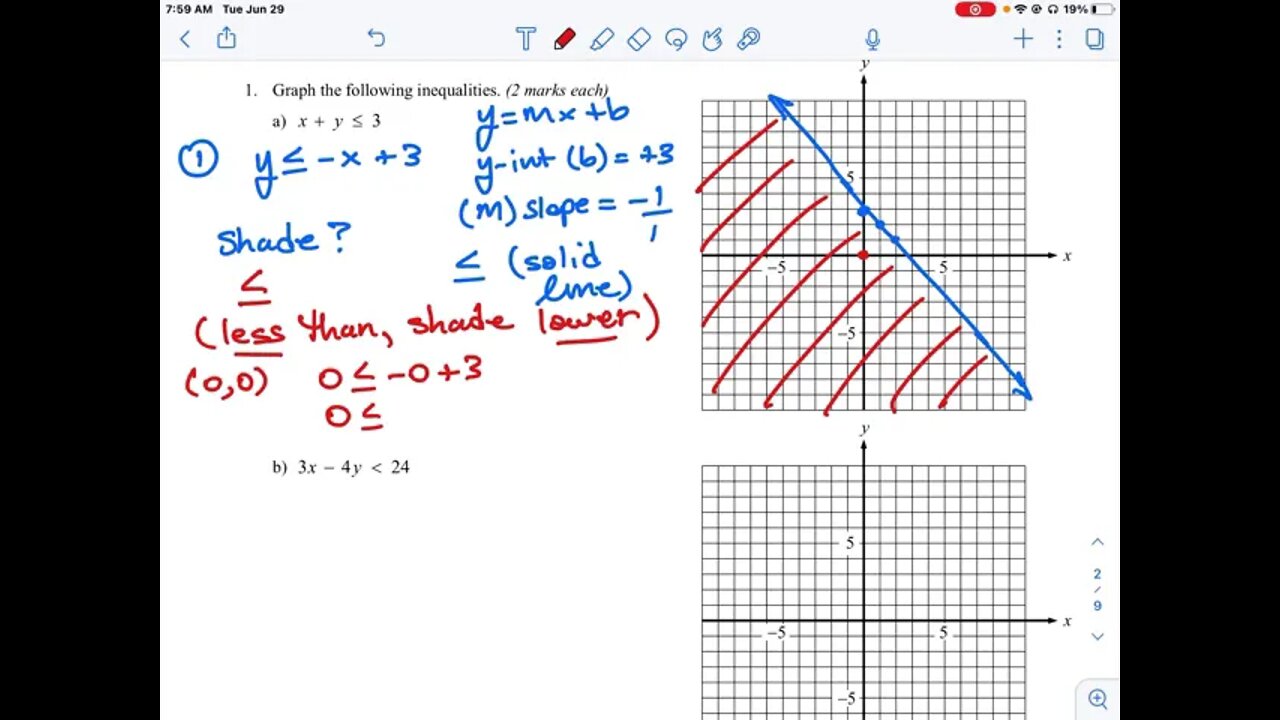 7:59 AM Tue Jun 29
19%
1. Graph the following inequalities. (2 marks each)
a) x + y ≤ 3
y = mx + b
① y ≤ -x + 3
y-int (b) = +3
(m) slope = -1/1
shade?
≤ (solid
line)
≤
(less than, shade lower)
(0,0) 0 ≤ -0+3
0 ≤
b) 3x − 4y < 24
y
5
-5
5
x
-5
y
5
-5
5
x
-5
2
/
9